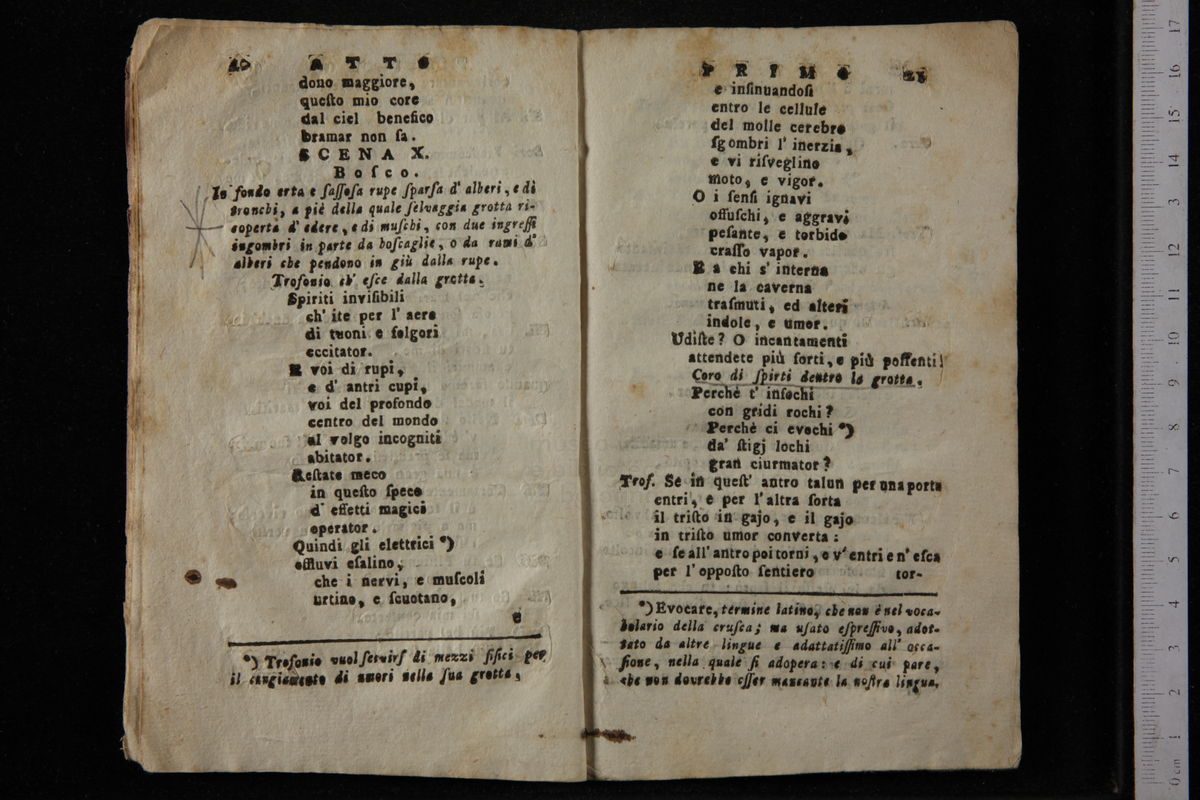 20 ATTO
dono maggiore,
queſto mio core
dal ciel benefico
bramar non ſa.
SCENA X.
Boſco.
In fondo erta e ſaſſoſa rupe ſparſa d' alberi, e di
tronchi, a piè della quale ſelvaggia grotta ri-
coperta d' edere, e di muſchi, con due ingreſſi
ingombri in parte da boſcaglie, o da rami d'
alberi che pendono in giù dalla rupe.
Trofonio ch' eſce dalla grotta.
Spiriti inviſibili
ch' ite per l' aere
di tuoni e folgori
eccitator.
E voi di rupi,
e d' antri cupi,
voi del profondo
centro del mondo
al volgo incogniti
abitator.
Reſtate meco
in queſto ſpeco
d' effetti magici
operator.
Quindi gli elettrici *)
effluvi eſalino,
che i nervi, e muſcoli
urtino, e ſcuotano,
e
*) Trofonio vuol ſervirſ di mezzi fiſici per
il cangiamento di umori nella ſua grotta.
PRIMO 21
e inſinuandoſi
entro le cellule
del molle cerebro
ſgombri l' inerzia,
e vi riſveglino
moto, e vigor.
O i ſenſi ignavi
offuſchi, e aggravi
peſante, e torbido
craſſo vapor.
E a chi s' interna
ne la caverna
traſmuti, ed alteri
indole, e umor.
Udiſte? O incantamenti
attendete più forti, e più poſſenti!
Coro di ſpirti dentro la grotta.
Perchè t' infochi
con gridi rochi?
Perchè ci evochi *)
da' ſtigj lochi
gran ciurmator?
Trof. Se in queſt' antro talun per una porta
entri, e per l' altra ſorta
il triſto in gajo, e il gajo
in triſto umor converta:
e ſe all' antro poi torni, e v' entri e n' eſca
per l' oppoſto ſentiero tor-
*) Evocare, termine latino, che non è nel voca-
bolario della cruſca; ma uſato eſpreſſivo, adot-
tato da altre lingue e adattatiſſimo all' occa-
ſione, nella quale ſi adopera: e di cui pare,
che non dovrebbe eſſer mancante la noſtra lingua.